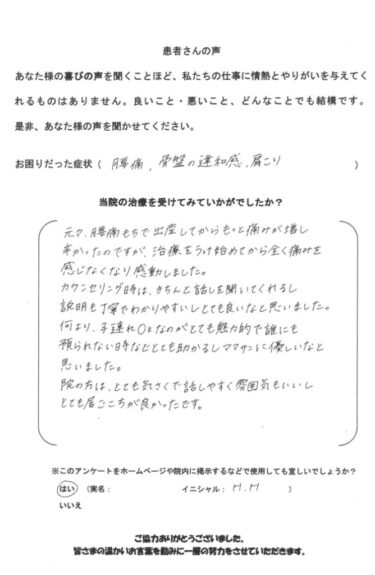 患者さんの声
あなた様の喜びの声を聞くことほど、私たちの仕事に情熱とやりがいを与えてく
れるものはありません。良いこと・悪いこと、どんなことでも結構です。
是非、あなた様の声を聞かせてください。
お困りだった症状（ 腰痛、骨盤の違和感、肩こり ）
当院の治療を受けてみていかがでしたか？
元々、腰痛もちで出産してからもっと痛みが増し
辛かったのですが、治療をうけ始めてから全く痛みを
感じなくなり感動しました。
カウンセリング時は、きちんと話しを聞いてくれるし
説明も丁寧でわかりやすいしとても良いなと思いました。
何より、子連れOKなのがとても魅力的で誰にも
預られない時などとても助かるしママサンに優しいなと
思いました。
院の方は、とても気さくで話しやすく雰囲気もいいし
とても居ごこちが良かったです。
※このアンケートをホームページや院内に掲示するなどで使用しても宜しいでしょうか？
はい （実名： イニシャル： M.M ）
いいえ
ご協力ありがとうございました。
皆さまの温かいお言葉を励みに一層の努力をさせていただきます。